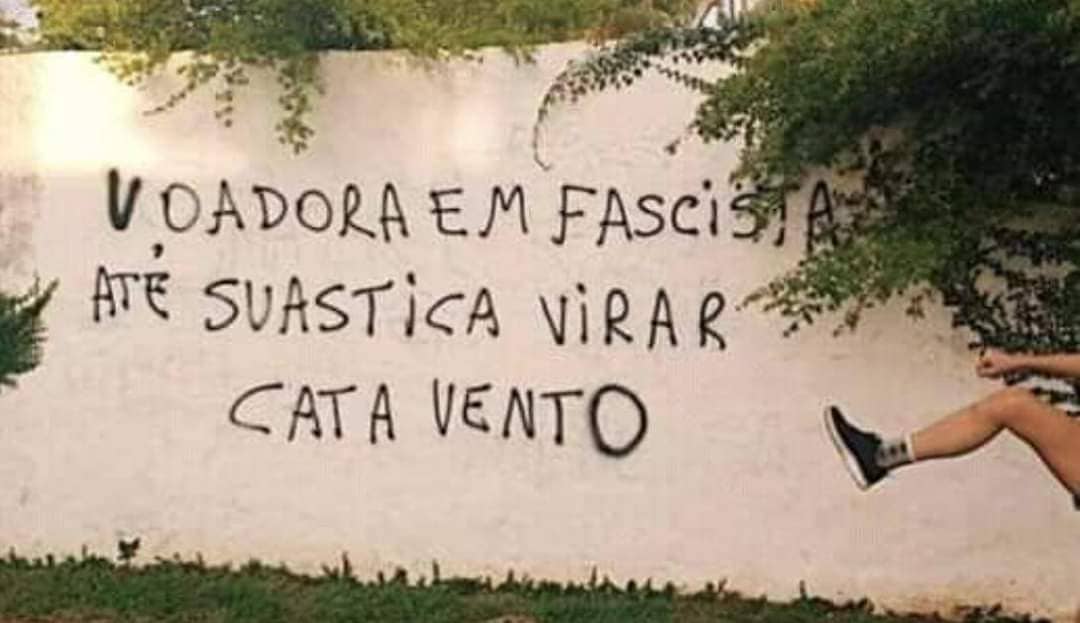 VOADORA EM FASCiSTA
ATÉ SUASTiCA ViRAR
CATA VENTO